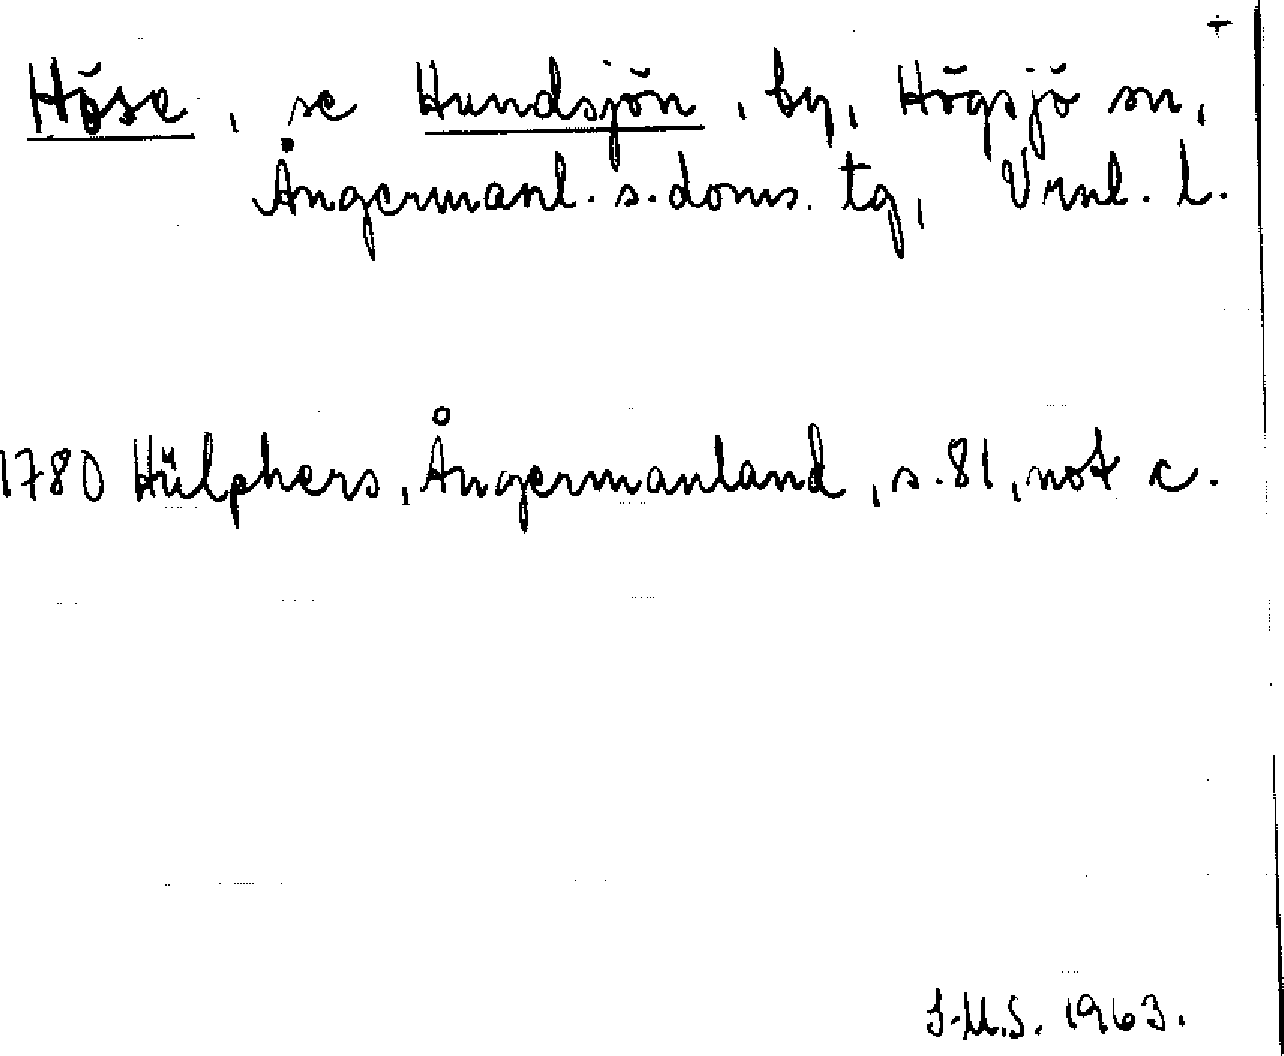 +
Höse, se Hundsjön, by, Högsjö sn,
Ångermanl. s. doms. tg, Vrnl. l.
1780 Hülphers, Ångermanland, s. 81, not c.
J.M.S. 1963.